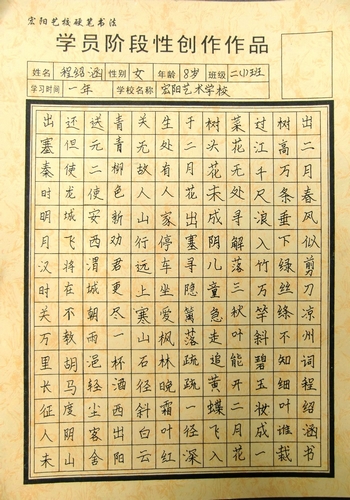 宏阳艺校硬笔书法
学员阶段性创作作品
姓名 程绍涵 性别 女 年龄 8岁 班级 二(1)班
学习时间 一年 学校名称 宏阳艺术学校
出二月春风似剪刀凉州词程绍涵书
树高万条垂下绿丝绦不知细叶谁裁
过江千尺浪入竹万竿斜碧玉妆成一
菜花无处寻解落三秋叶能开二月花
树头花未成阴儿童急走追黄蝶飞入
于二月花出塞寻隐篱落疏疏一径深
生处有人家停车坐爱枫林晚霜叶红
关无故人山行远上寒山石径斜白云
青青柳色新劝君更尽一杯酒西出阳
送元二使安西渭城朝雨浥轻尘客舍
还但使龙城飞将在不教胡马度阴山
出塞秦时明月汉时关万里长征人未